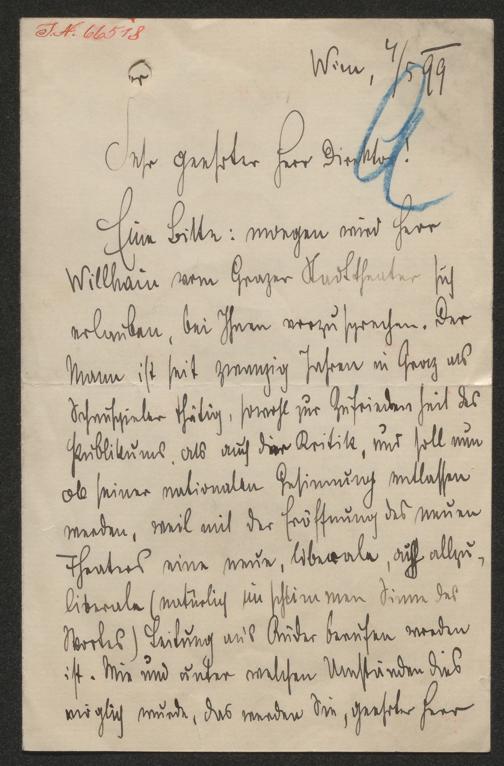 J.N. 66518
Wien, 4/5 99
Sehr geehrter Herr Direktor!
Eine Bitte: morgen wird Herr
Willhain vom Grazer Stadttheater sich
erlauben, bei Ihnen vorzusprechen. Der
Mann ist seit zwanzig Jahren in Graz als
Schauspieler thätig, sowohl zur Zufriedenheit des
Publikums, als auch der Kritik, und soll nun
ob seiner nationalen Gesinnung entlassen
werden, weil mit der Eröffnung des neuen
Theaters eine neue, liberale, allzu-
liberale (natürlich im schlimmen Sinne des
Wortes) Leitung an's Ruder berufen worden
ist. Wie und unter welchen Umständen dies
möglich wurde, das werden Sie, geehrter Herr